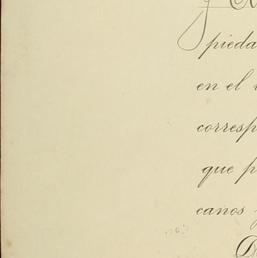 y
pieda
en el
corresp
que p
canos